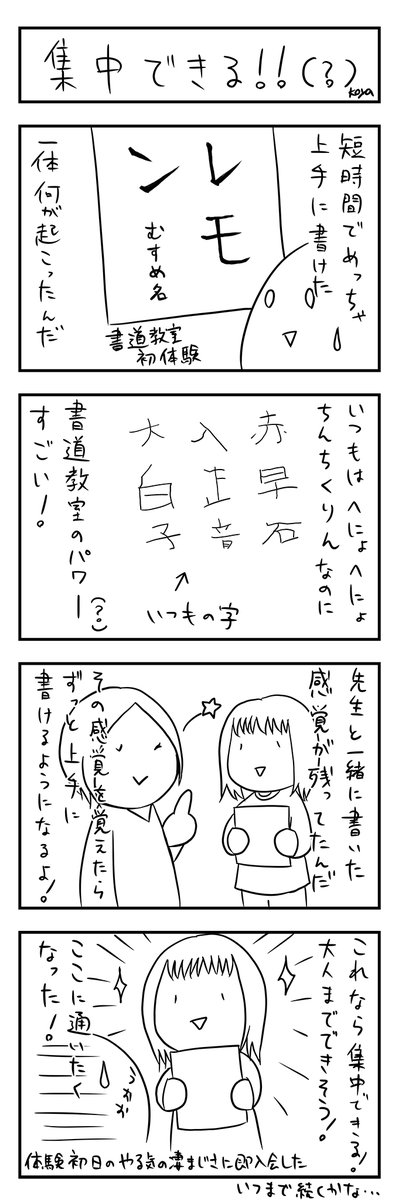 集中できる!!(?)
koya
短時間でめっちゃ
上手に書けた
レモ
ン
むすめ名
書道教室
初体験
一体何が起こったんだ
いつもはへにょへにょ
ちんちくりんなのに
赤早石
入正音
大白子
いつもの字
書道教室のパワー(?)
すごい!
先生と一緒に書いた
感覚が残ってたんだ
その感覚を覚えたら
ずっと上手に
書けるようになるよ!
これなら集中できる!
大人までできそう!
ここに通いたく
なった!
体験初日のやる気の凄まじさに即入会した
いつまで続くかな…